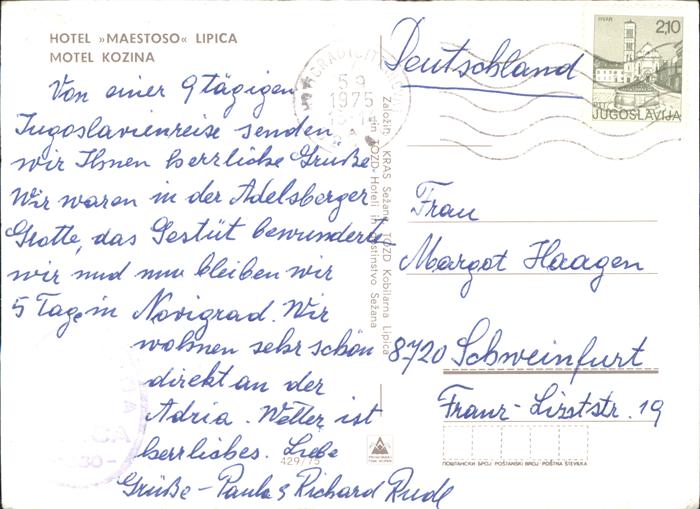 HOTEL »MAESTOSO« LIPICA
MOTEL KOZINA
Von einer 9tägigen
Jugoslavienreise senden
wir Ihnen herrliche Grüße
Wir waren in der Adelsberger
Grotte, das Gestüt bewunderte
wir und nun bleiben wir
5 Tage in Novigrad. Wir
wohnen sehr schön
direkt an der
Adria. Wetter ist
herrliches. Liebe
Grüße – Paula & Richard Rudl
429/75
5 9
1975
Založili: KRAS Sežana, TOZD Kobilarna Lipica
in TOZD-Hoteli in gostinstvo Sežana
Deutschland
HVAR
2,10
JUGOSLAVIJA
Frau
Margot Haagen
8720 Schweinfurt
Franz-Lisztstr. 19
ПОШТАНСКИ БРОЈ POŠTANSKI BROJ POŠTNA ŠTEVILKA